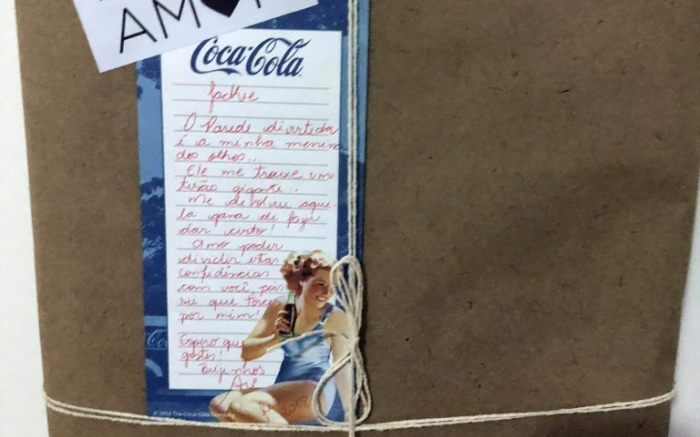 AMOR
Coca-Cola
Jackie
O Parede divertida
é a minha menina
dos olhos...
Ele me trouxe um
tesão gigante..
Me devolveu aque-
la garra de fazer
dar certo!
Amo poder
dividir estas
confidências
com você, pois
sei que torce
por mim!
Espero que
goste!
Beijinhos